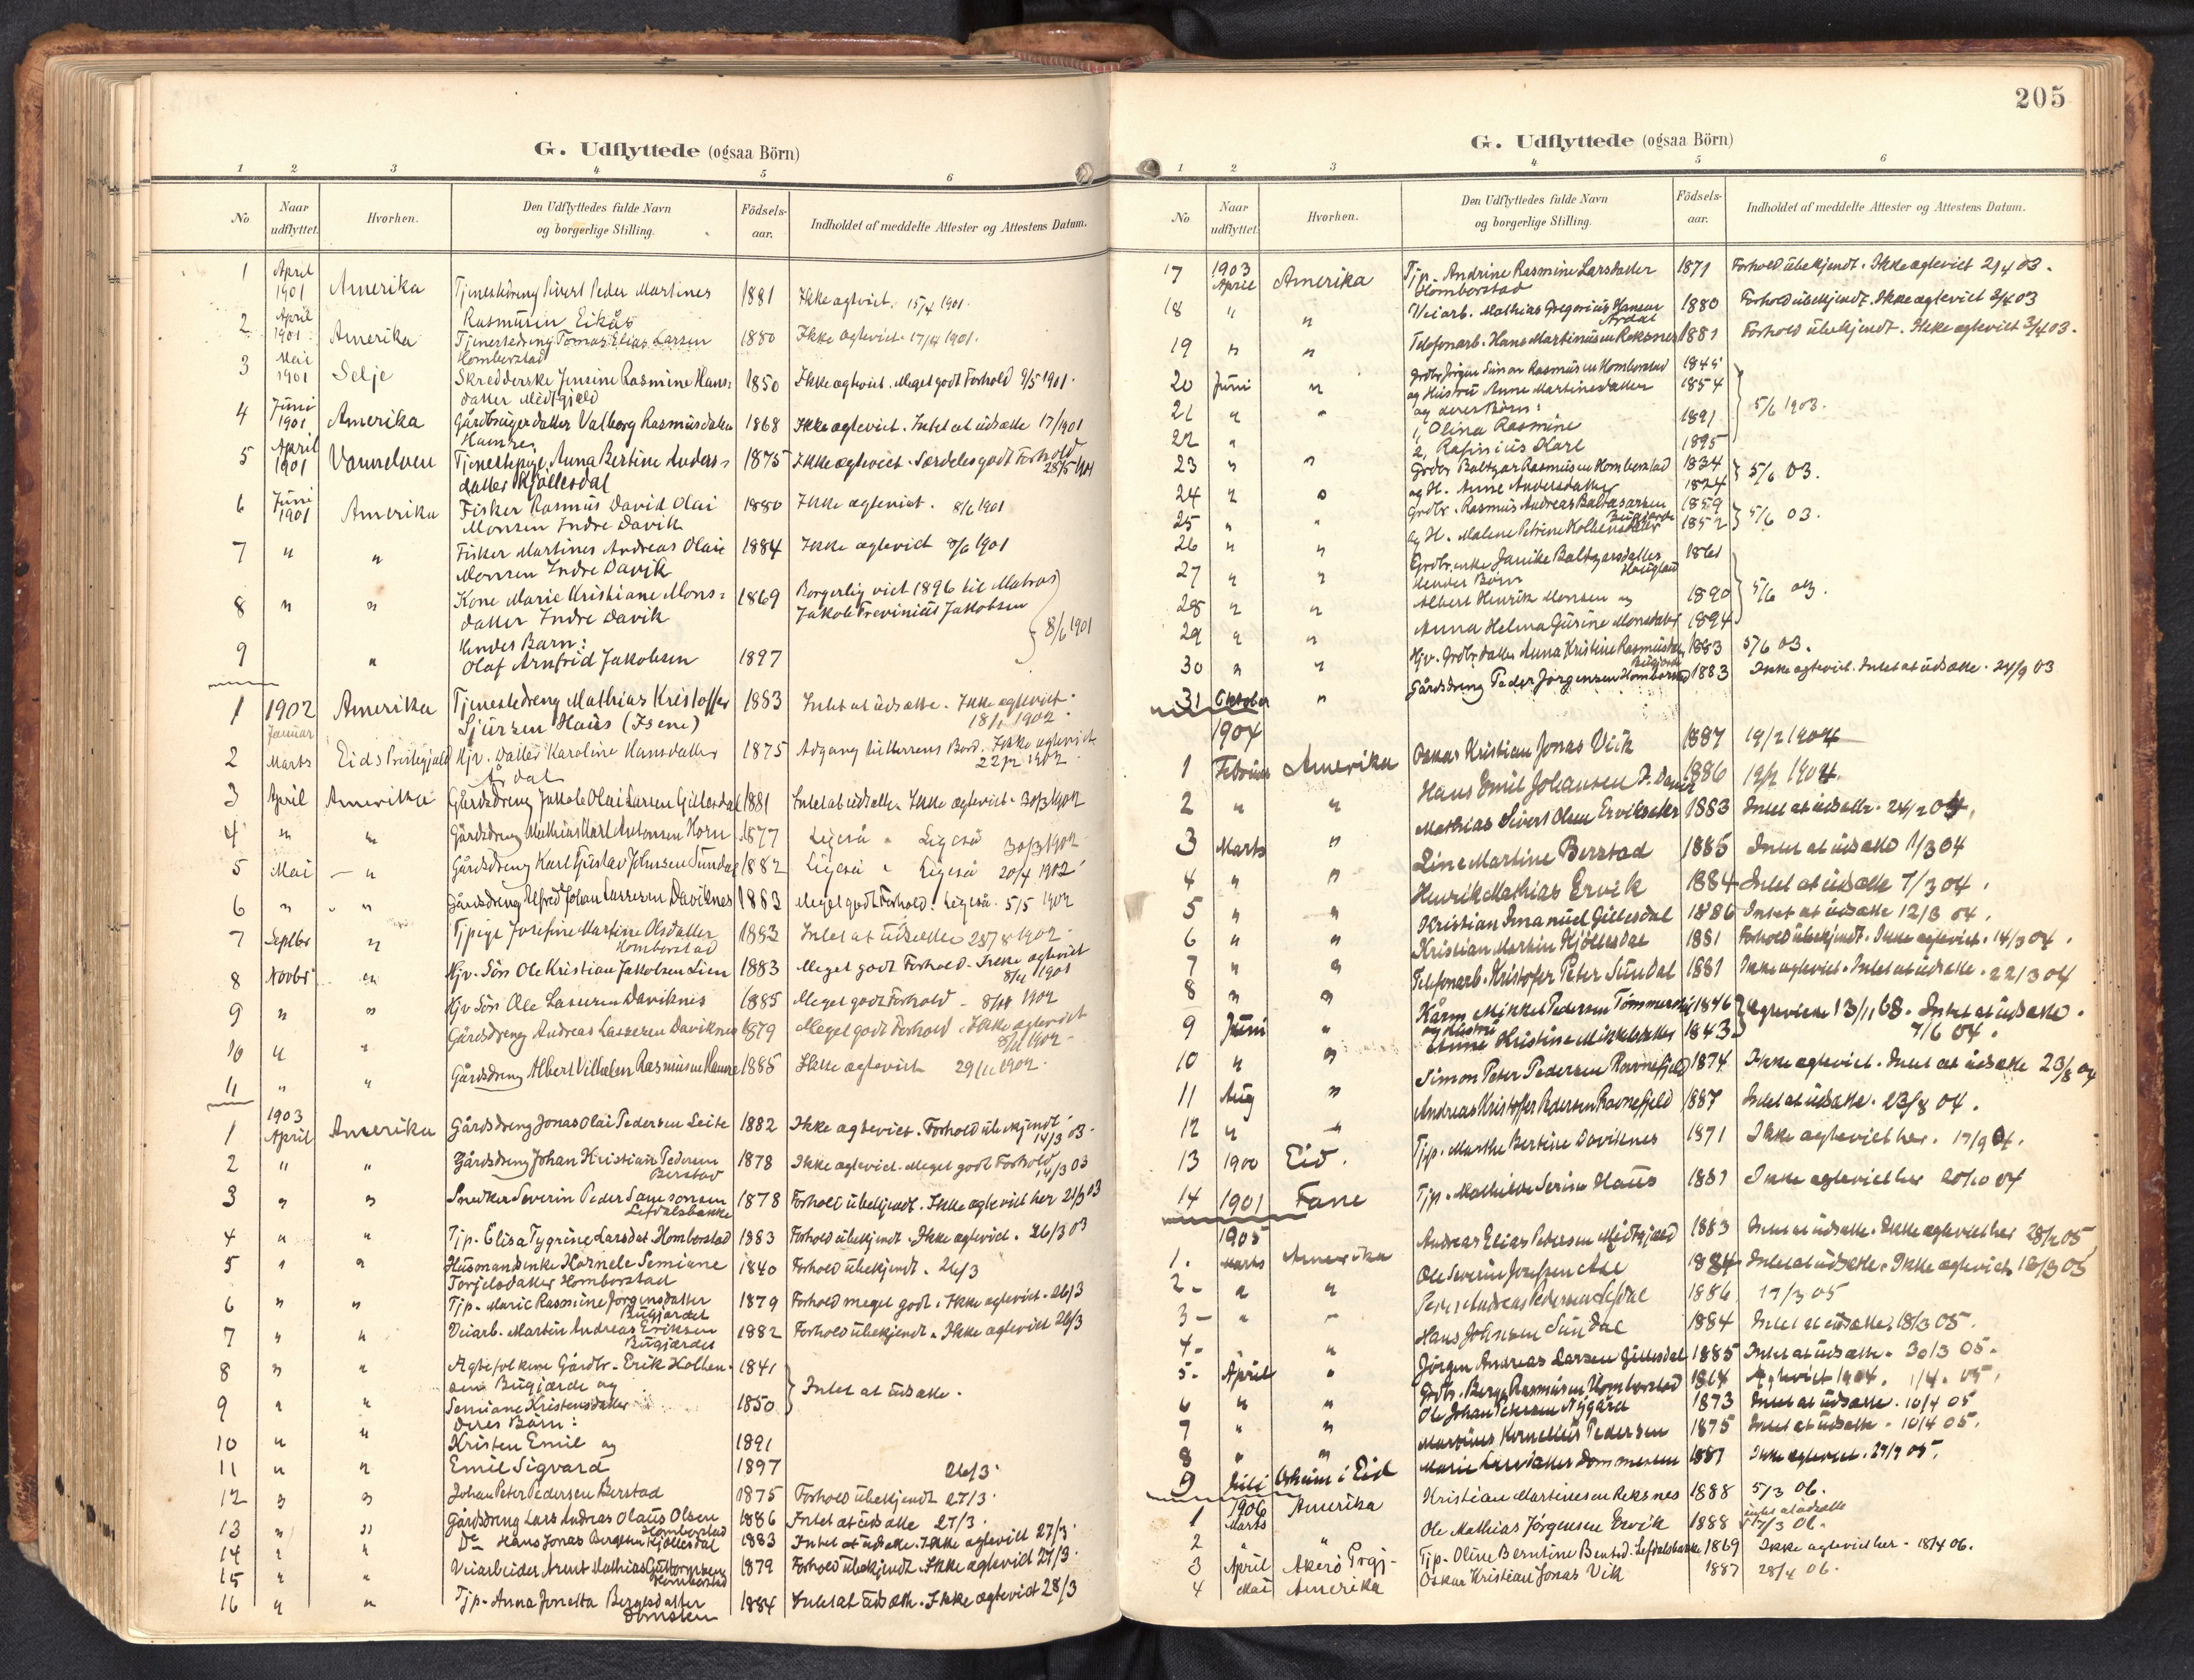 G. Udflyttede (ogsaa Börn)
1 2 3 4 5 6
No Naar udflyttet. Hvorhen. Den Udflyttedes fulde Navn og borgerlige Stilling. Födsels-aar. Indholdet af meddelte Attester og Attestens Datum.
1 April 1901 Amerika Tjenestedreng Sivert Peder Martines 1881 Ikke agtviet. 15/4 1901.
Rasmusen Eikås
2 April 1901 Amerika Tjenestedreng Tomas Elias Larsen 1880 Ikke ægteviet. 17/4 1901.
Homborstad
3 Mai 1901 Selje Skredderske Jensine Rasmine Hans= 1850 Ikke ægteviet. Meget godt Forhold 9/5 1901.
datter Midtgjæld
4 Juni 1901 Amerika Gårdbrugerdatter Valborg Rasmusdatter 1868 Ikke ægteviet. Intet at udsætte 17/1901
Hamnes
5 April 1901 Tjenestepige Anna Bertine Anders= 1875 Ikke ægteviet. Særdeles godt Forhold
datter Kjöllesdal 28/5 1901
6 Juni 1901 Amerika Fisker Rasmus David Olai 1880 Ikke ægteviet. 8/6 1901
Monsen Indre Davik
7 " " Fisker Martines Andreas Olai 1884 Ikke ægteviet 8/6 1901
Monsen Indre Davik
8 " " Kone Marie Kristiane Mons= 1869 Borgerlig viet 1896 til Matros
datter Indre Davik Jakob Jakobsen
Hendes Barn: 8/6 1901
9 " Olaf Arnfrid Jakobsen 1897
1 1902 Januar Amerika Tjenestedreng Mathias Kristoffer 1883 Intet at udsætte. Ikke ægteviet.
Sjursen Haus (Isene) 18/1 1902.
2 Marts Eids Præstegjæld Kjv. Datter Karoline Hansdatter 1875 Adgang til Herrens Bord. Ikke ægteviet
Årdal 22/2 1902.
3 April Amerika Gårdsdreng Jakob Olai Larsen Gillesdal 1881 Intet at udsætte. Ikke ægteviet. 30/3 1902
4 " " Gårdsdreng Mathias Karl Antonsen Horn 1877 Ligeså " Ligeså 30/3 1902
5 Mai — " Gårdsdreng Karl Gustav Johnsen Sundal 1882 Ligeså " Ligeså 20/4 1902
6 " " Gårdsdreng Alfred Johan Lassesen Daviknes 1883 Meget godt Forhold. Ligeså. 5/5 1902
7 Septbr " Tjpige Josefine Martine Olsdatter 1883 Intet at udsætte 25/8 1902.
Homborstad
8 Novbr " Kjv. Sön Ole Kristian Jakobsen Lien 1883 Meget godt Forhold. Ikke ægteviet
9 " " Kjv Sön Ole Lassesen Daviknes 1885 Meget godt Forhold - 1902
10 " " Gårdsdreng Andreas Lassesen Daviknes 1879 Meget godt Forhold. Ikke ægteviet
1902.
11 " " Gårdsdreng Albert Vilhelm Rasmusen Hamre 1885 Ikke ægteviet 29/11 1902.
1903
1 April Amerika Gårdsdreng Jonas Olai Pedersen Leite 1882 Ikke ægteviet. Forhold ubekjendt
14/3 03.
2 " " Gårdsdreng Johan Kristian Pedersen 1878 Ikke ægteviet. Meget godt Forhold
Berstad 14/3 03
3 " " Snedker Severin Peder Samsonsen 1878 Forhold ubekjendt. Ikke ægteviet her 21/3 03
Lefdalsbakke
4 " " Tjp. Elisa Tygrine Larsdat. Homborstad 1883 Forhold ubekjendt. Ikke ægteviet. 26/3 03
5 " " Husmandsenke Kornele Semiane 1840 Forhold ubekjendt. 26/3
Torjelsdatter Homborstad
6 " " Tjp. Marie Rasmine Jörgensdatter 1879 Forhold meget godt. Ikke ægteviet. 26/3
Bugjærdet
7 " " Veiarb. Martin Andreas Eriksen 1882 Forhold ubekjendt. Ikke ægteviet 26/3
Bugjærdet
8 " " Gårdbr. Erik Kolben- 1841
sen Bugjærde og
9 " " Semiane Kristensdatter 1850 Intet at udsætte.
Deres Börn:
10 " " Kristen Emil og 1891
11 " " Emil Sigvard 1897 26/3.
12 " " Johan Peter Pedersen Berstad 1875 Forhold ubekjendt 27/3.
13 " " Gårdsdreng Lars Andreas Olaus Olsen 1886 Intet at udsætte 27/3.
Homborstad
14 " " Do Hans Jonas Bergesen Kjöllesdal 1883 Intet at udsætte. Ikke ægteviet 27/3.
15 " " Veiarbeider Arent Mathias Guttormsen 1879 Forhold ubekjendt. Ikke ægteviet 27/3.
Homborstad
16 " " Tjp. Anna Jonetta Bergesdatter 1884 Intet at udsætte. Ikke ægteviet 28/3
Domsten
205
G. Udflyttede (ogsaa Börn)
1 2 3 4 5 6
No Naar udflyttet. Hvorhen. Den Udflyttedes fulde Navn og borgerlige Stilling. Födsels-aar. Indholdet af meddelte Attester og Attestens Datum.
17 1903 April Amerika Tjp. Andrine Rasmine Larsdatter 1871 Forhold ubekjendt. Ikke ægteviet 2/4 03.
Homborstad
18 " " Veiarb. Mathias Gregorius Hansen 1880 Forhold ubekjendt. Ikke ægteviet 2/4 03
Årdal
19 " " Telefonarb. Hans Martinusen Reksnes 1881 Forhold ubekjendt. Ikke ægteviet 3/4 03.
20 Juni " Grdbr. Jörgen Simon Rasmusen Homborstad 1845
og Hustru Anne Martinesdatter 1854
21 " " og deres Börn: 5/6 1903.
1, Olina Rasmine 1891
22 " 2, Rasmus Karl 1895
23 " " Grdbr Baltzar Rasmusen Homborstad 1834
og H. Anne Andersdatter 1824 5/6 03.
24 " " Grdbr. Rasmus Andreas Baltasarsen 1859
Bugjærde
25 " " og H. Malene Petrine Kolbensdatter 1852 5/6 03.
26 " " Grdbr.enke Janike Baltzarsdatter 1861
Haugland
27 " " Hendes Börn
Albert Henrik Monsen og 1890 5/6 03.
28 " " Anna Helma Gurine Monsdatter 1894
29 " " Kjv. Grdbr.datter Anna Kristine Rasmusdatter 1883 5/6 03.
Bugjærde
30 " " Gårdsdreng Peder Jörgensen Homborstad 1883 Ikke ægteviet. Intet at udsætte. 24/9 03
31 Oktober "
1904
1 Februar Amerika Oskar Kristian Jonas Vik 1887 19/2 1904
Hans Emil Johansen I. Davik 1886 19/2 1904.
2 " " Mathias Sivert Olsen Erviksæter 1883 Intet at udsætte. 24/2 04.
3 Marts " Line Martine Berstad 1885 Intet at udsætte 1/3 04
4 " " Henrik Mathias Ervik 1884 Intet at udsætte 7/3 04.
5 " " Kristian Imanuel Gillesdal 1886 Intet at udsætte 12/3 04.
6 " " Kristian Martin Kjöllesdal 1881 Forhold ubekjendt. Ikke ægteviet. 14/3 04.
7 " " Telefonarb. Kristofer Peter Sundal 1881 Ikke ægteviet. Intet at udsætte. 22/3 04
8 " " Kårm. Mikkel Pedersen 1846 Ægteviede 13/11 68. Intet at udsætte.
og Hustru
9 Juni " Anne Kristine Mikkelsdatter 1843 7/6 04.
10 " " Simon Peter Pedersen Ravnefjeld 1874 Ikke ægteviet. Intet at udsætte 23/8 04
11 Aug " Andreas Kristoffer Pedersen Ravnefjeld 1887 Intet at udsætte. 23/8 04.
12 " " Tjp. Marthe Bertine Daviknes 1871 Ikke ægteviet her. 17/9 04.
13 1900 Eid.
14 1901 Fane Tjp. Mathilde Serine Haus 1881 Ikke ægteviet her 20/10 04
1905
1. Marts Amerika Andreas Elias Pedersen Midtgjæld 1883 Intet at udsætte. Ikke ægteviet her 28/2 05
2- " " Ole Severin Josefsen Aae 1884 Intet at udsætte. Ikke ægteviet 18/3 05
3- " " Peder Andreas Pedersen Lefdal 1886 17/3 05
4- " Hans Johnsen Sundal 1884 Intet at udsætte. 18/3 05.
5- April " Jörgen Andreas Larsen Gillesdal 1885 Intet at udsætte. 30/3 05.
Grdb. Berge Rasmusen Homborstad 1864 Ægteviet 1904. 1/4. 05.
6 " " Ole Johan Petersen Nygård 1873 Intet at udsætte. 10/4 05
7 " " Martinus Kornelius Pedersen 1875 Intet at udsætte. 10/4 05.
8 " " Marie Larsdatter Dommersen 1881 Ikke ægteviet. 05.
9 Juli i Eid
Kristian Martinesen Reksnes 1888 5/3 06.
1 1906 Marts Amerika Intet at udsætte
2 " " Ole Mathias Jörgensen Ervik 1888 17/3 06.
3 April Akerö Prgj- Tjp. Oline Berntine Bentsd. Lefdalsbakke 1869 Ikke ægteviet her. 18/4 06.
4 Mai Amerika Oskar Kristian Jonas Vik 1887 28/4 06.